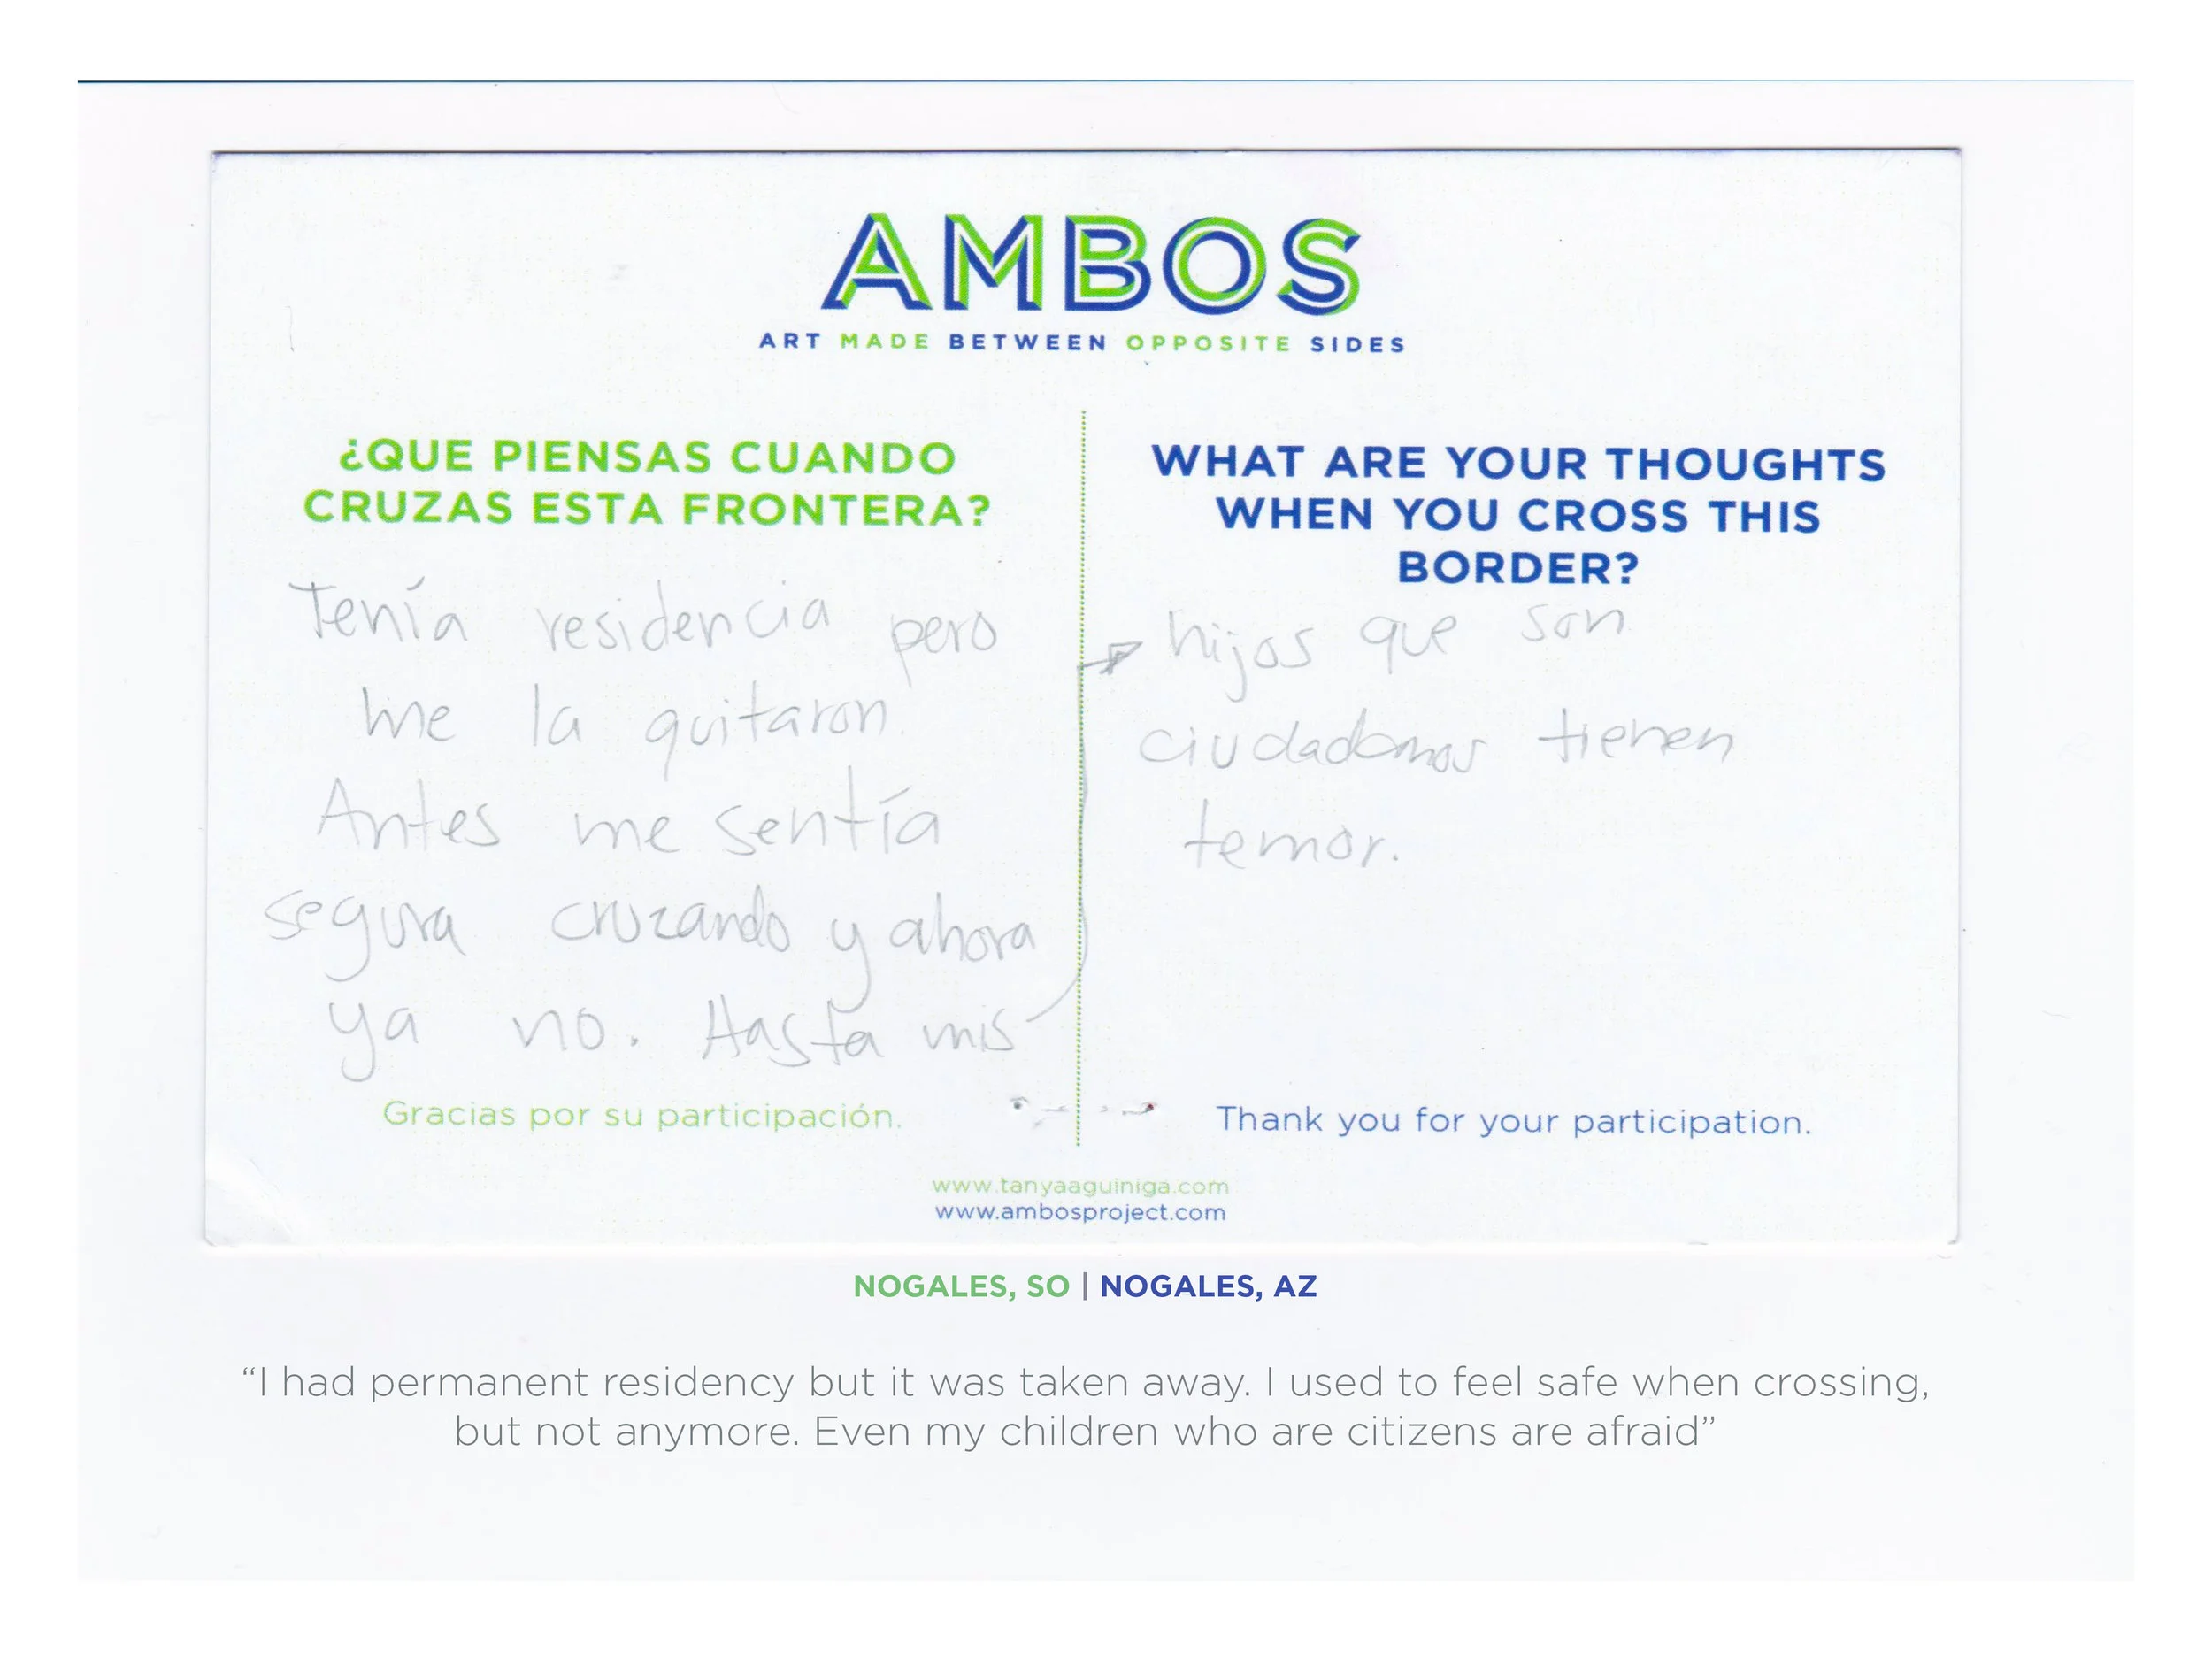 AMBOS
ART MADE BETWEEN OPPOSITE SIDES
¿QUE PIENSAS CUANDO
CRUZAS ESTA FRONTERA?
Tenía residencia pero
me la quitaron.
Antes me sentía
segura cruzando y ahora
ya no. Hasta mis
Gracias por su participación.
WHAT ARE YOUR THOUGHTS
WHEN YOU CROSS THIS
BORDER?
hijos que son
ciudadanos tienen
temor.
Thank you for your participation.
www.tanyaaguiniga.com
www.ambosproject.com
NOGALES, SO | NOGALES, AZ
“I had permanent residency but it was taken away. I used to feel safe when crossing,
but not anymore. Even my children who are citizens are afraid”